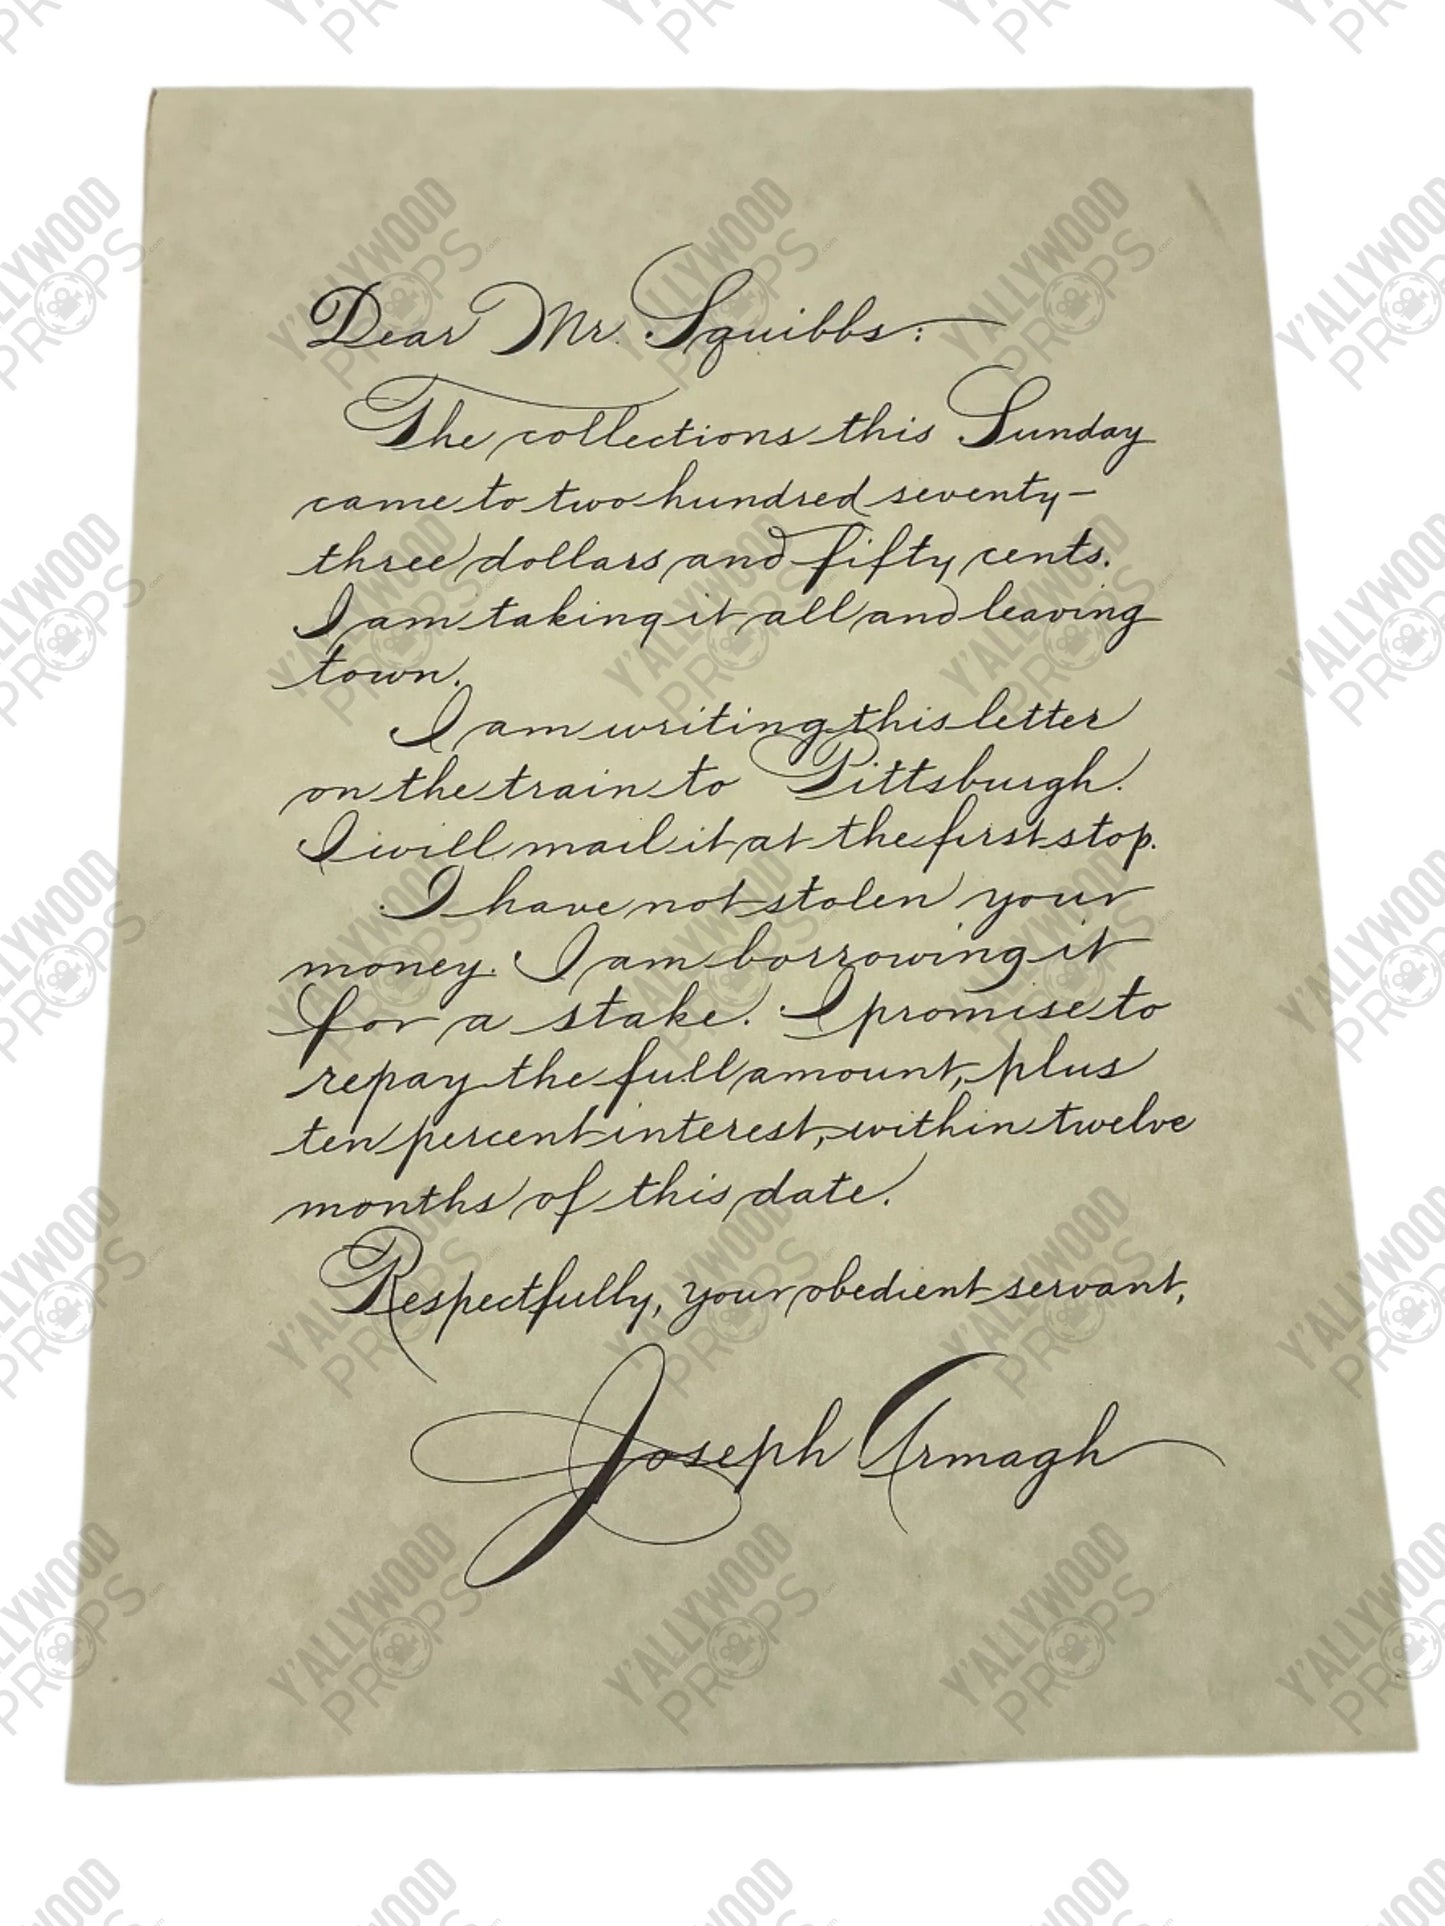 Dear Mr. Squibbs:
The collections this Sunday
came to two hundred seventy-
three dollars and fifty cents.
I am taking it all and leaving
town.
I am writing this letter
on the train to Pittsburgh.
I will mail it at the first stop.
I have not stolen your
money. I am borrowing it
for a stake. I promise to
repay the full amount, plus
ten percent interest, within twelve
months of this date.
Respectfully, your obedient servant,
Joseph Armagh
Y'ALLYWOOD
PROPS
.com